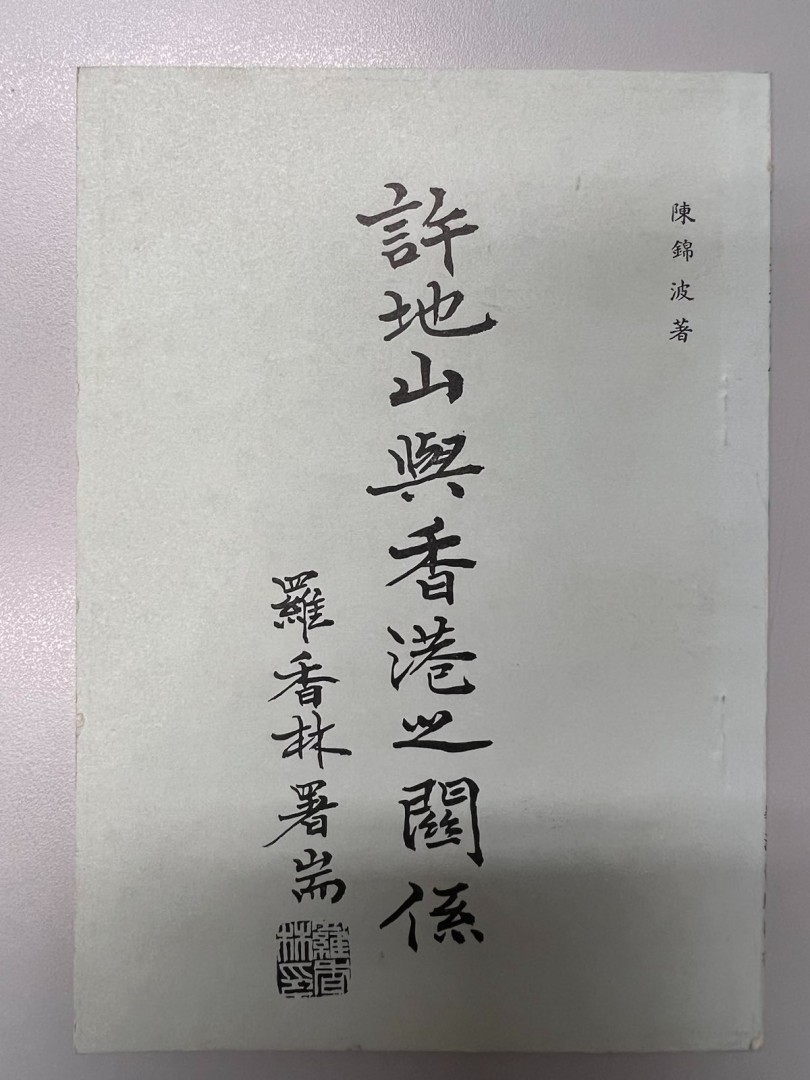 陳錦波著
許地山與香港之關係
羅香林署耑
羅香林印